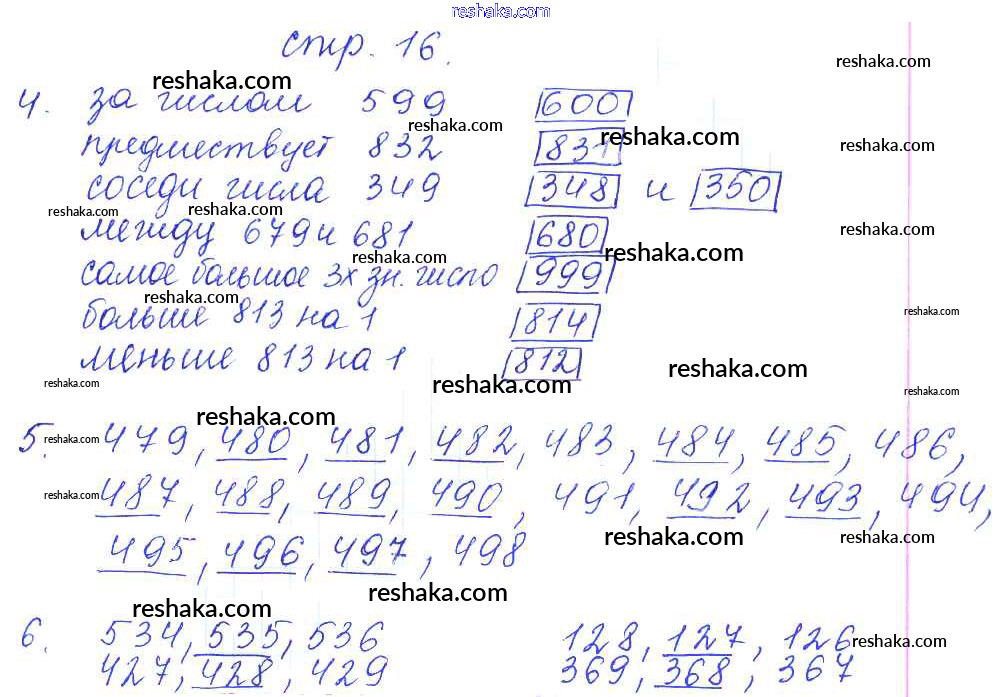 reshaka.com
стр. 16.
reshaka.com
reshaka.com
4. за числом 599 600
reshaka.com
reshaka.com
предшествует 832 831
reshaka.com
соседи числа 349 348 и 350
reshaka.com
reshaka.com
между 679 и 681 680
reshaka.com
reshaka.com
самое большое 3х зн. число 999
reshaka.com
больше 813 на 1 814
reshaka.com
меньше 813 на 1 812
reshaka.com
reshaka.com
reshaka.com
reshaka.com
reshaka.com
5. 479, 480, 481, 482, 483, 484, 485, 486,
reshaka.com
487, 488, 489, 490, 491, 492, 493, 494,
reshaka.com
reshaka.com
reshaka.com
495, 496, 497, 498
reshaka.com
reshaka.com
6. 534, 535, 536 128, 127, 126
reshaka.com
427, 428, 429 369, 368, 367